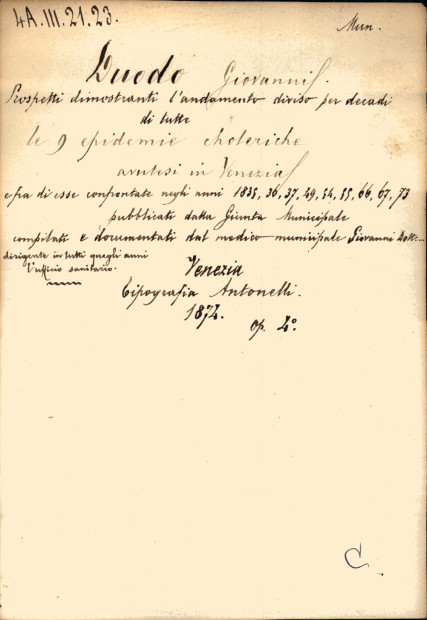 4A.III.21.23.
Mun.
Duodo Giovanni
Prospetti dimostranti l'andamento diviso per decadi
di tutte
le 9 epidemie choleriche
avutesi in Venezia
e fra di esse confrontate negli anni 1835, 36, 37, 49, 54, 55, 66, 67, 73
pubblicati dalla Giunta Municipale
compilati e documentati dal medico municipale Giovanni
dirigente in tutti quegli anni
l'ufficio sanitario.
Venezia
Tipografia Antonelli.
1874.
op. 4°.
C.